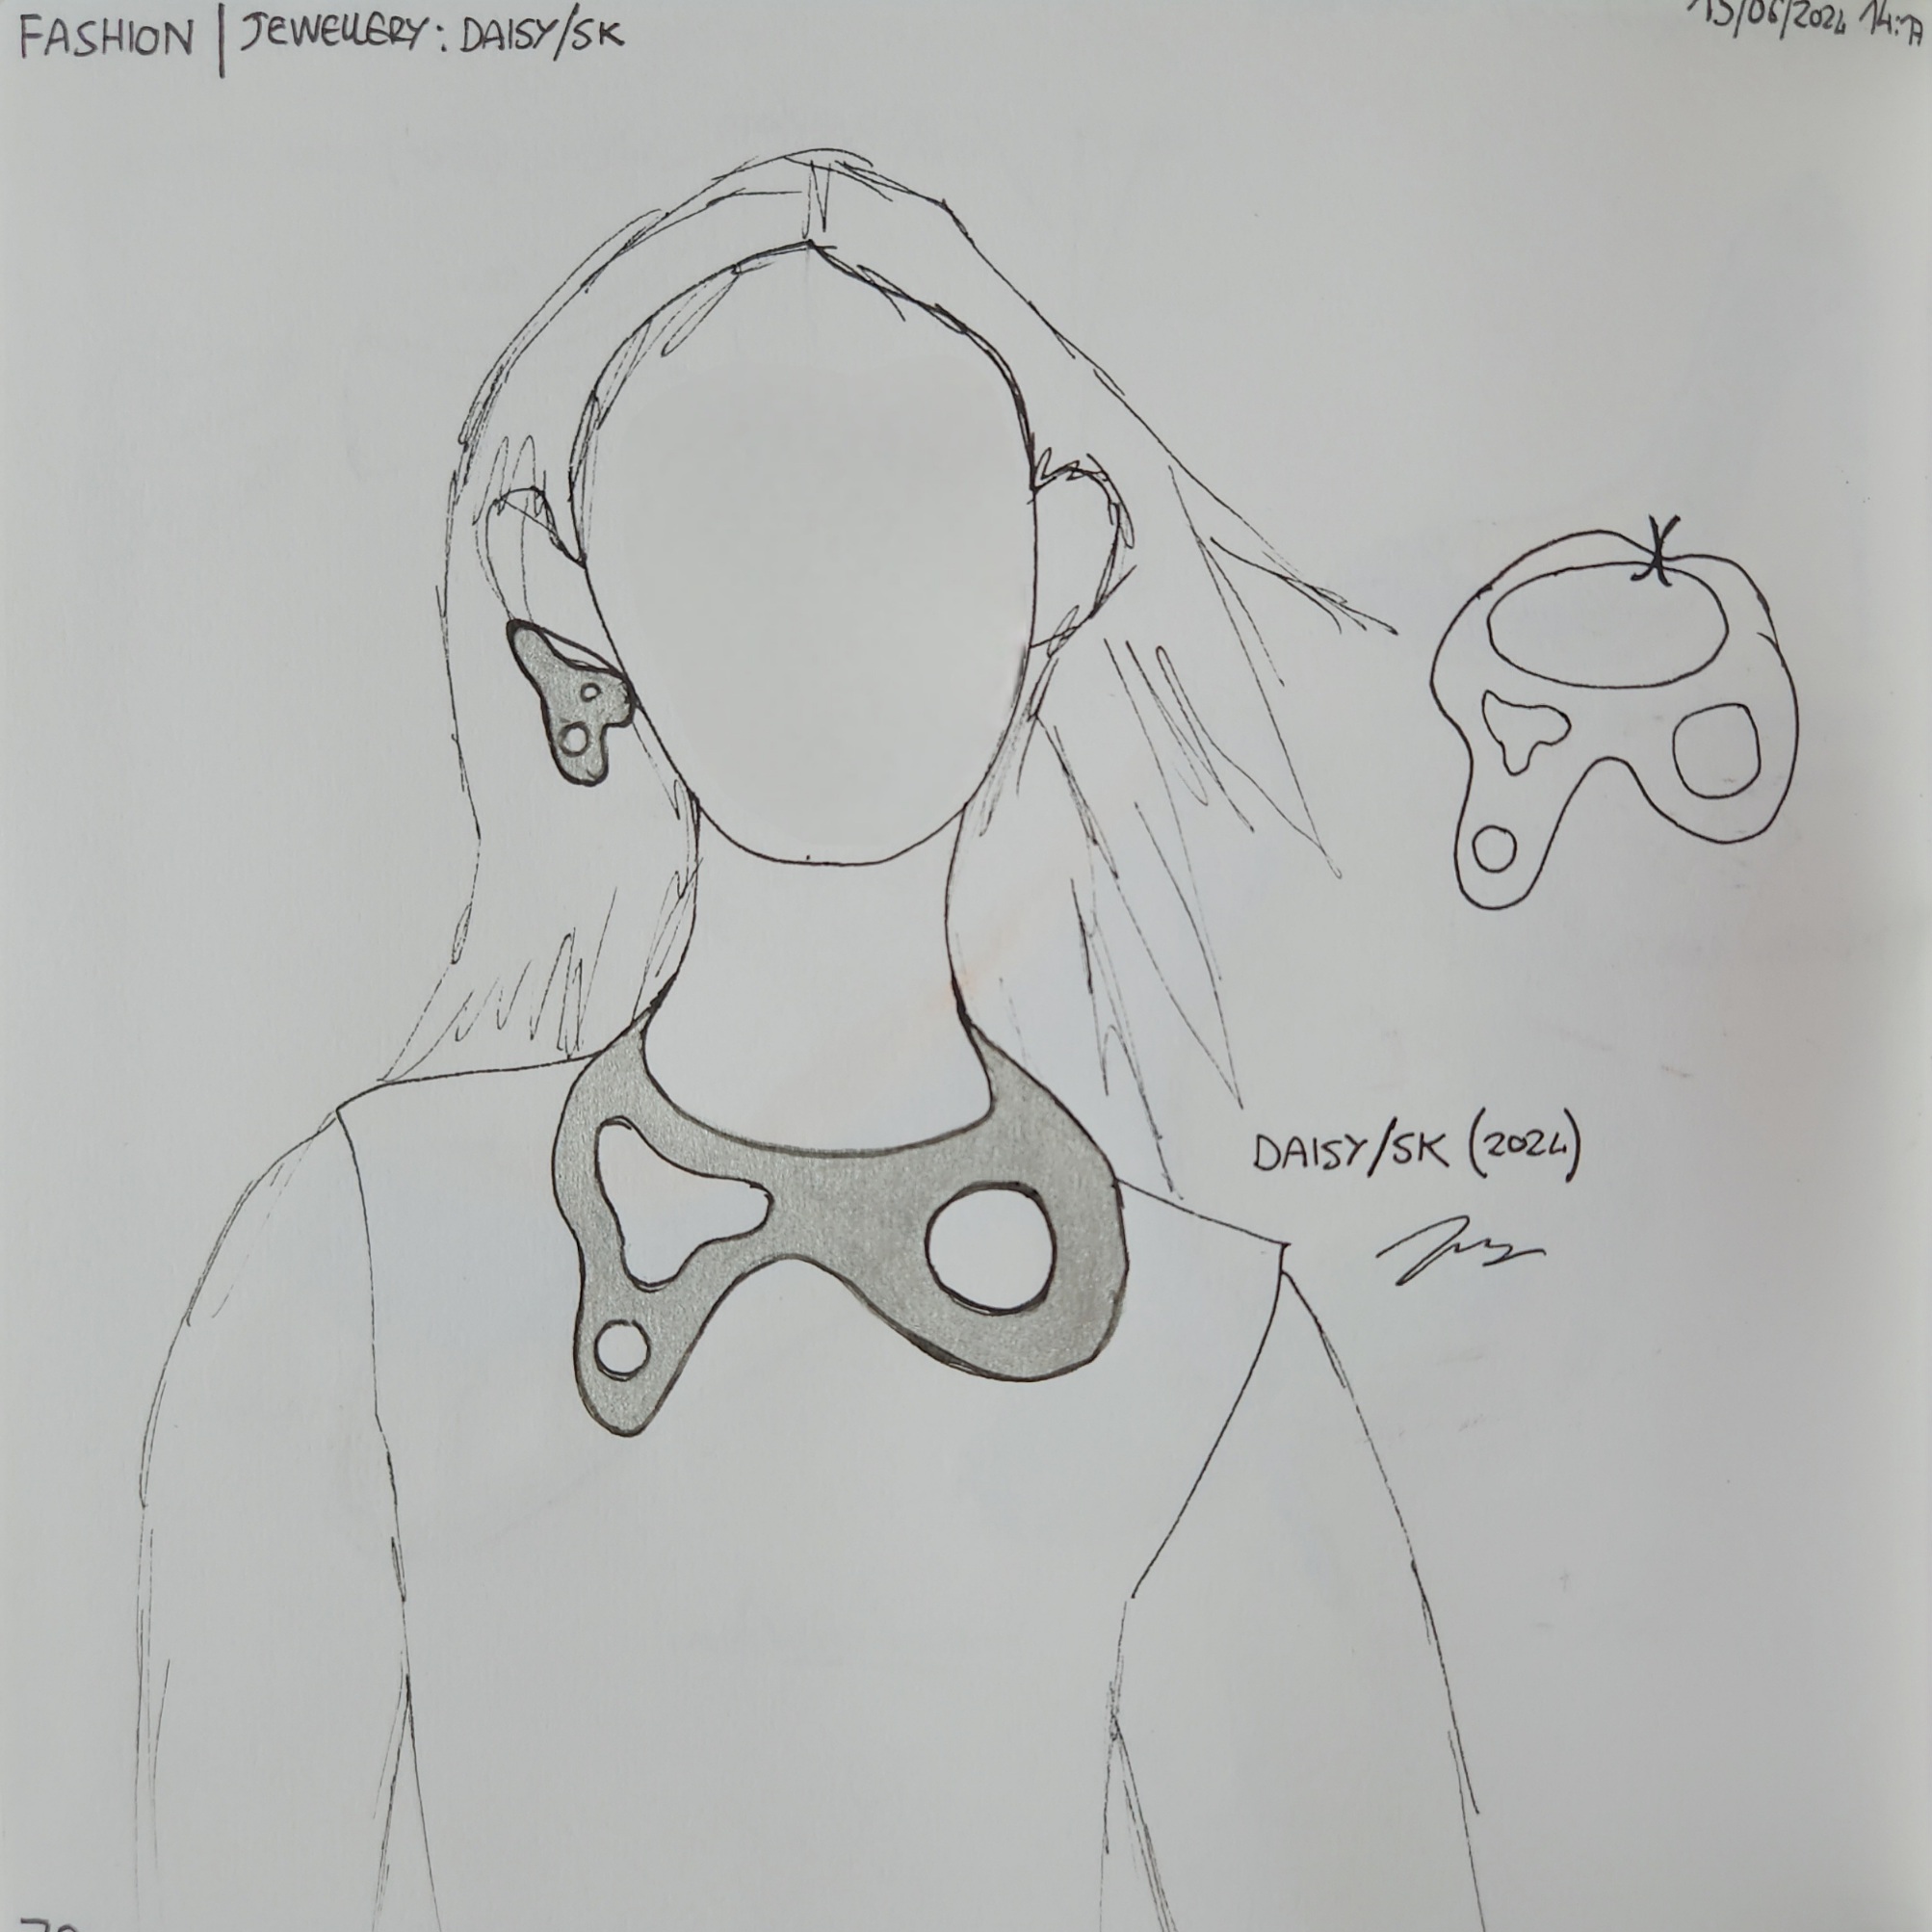 FASHION | JEWELLERY: DAISY/SK
15/06/2024
DAISY/SK (2024)